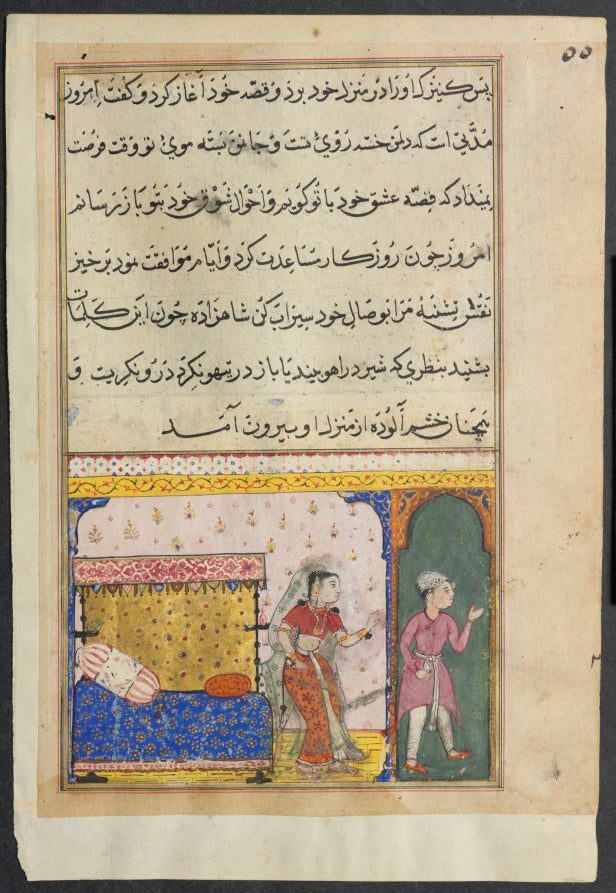 ۵۵
پس کنیزک او را در منزل خود برد و قصه خود آغاز کرد و گفت امروز
مدتی است که دل من خسته روی تست و جان من بسته موی تو وقت فرصت
نمیداد که قصه عشق خود با تو گویم و احوال شوق خود بتو باز رسانم
امروز چون روزگار مساعدت کرد و ایام موافقت نمود برخیز
نفس تشنه مرا بوصال خود سیراب کن شاهزاده چون این کلمات
بشنید بنظری که شیر در اهو بیند یا باز در تیهو نگرد درو نگریست و
همچنان خشم آلوده از منزل او بیرون آمد